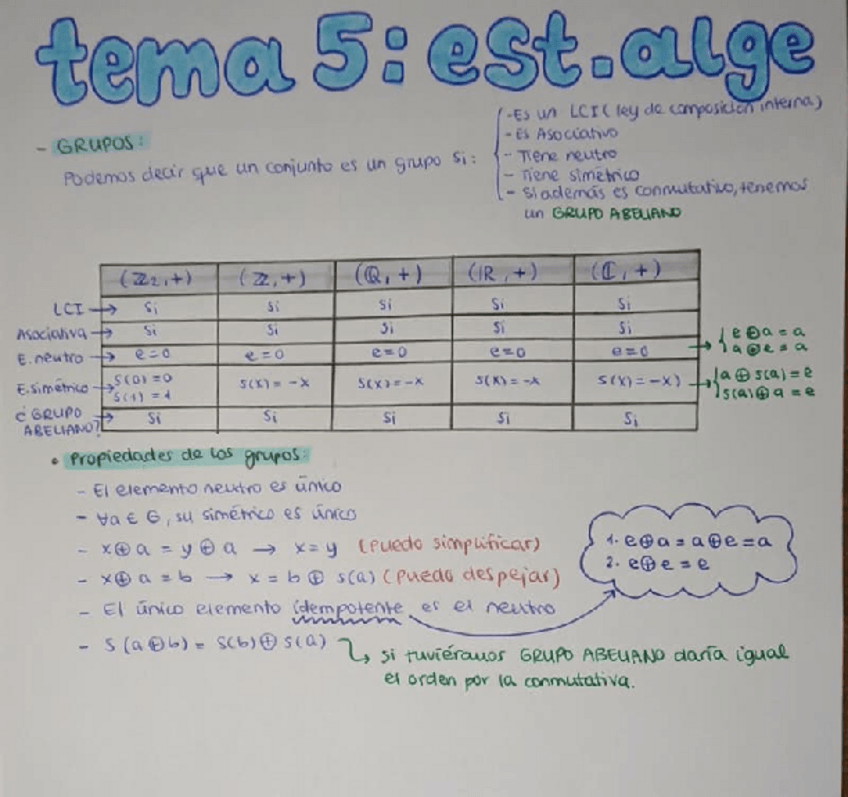 tema 5: est.alge
- GRUPOS:
Podemos decir que un conjunto es un grupo si:
- Es un LCI (ley de composición interna)
- es Asociativo
- Tiene neutro
- Tiene simétrico
- Si además es conmutativo, tenemos
un GRUPO ABELIANO
(ℤ2,+) (ℤ,+) (ℚ,+) (ℝ,+) (ℂ,+)
LCI → Si Si Si Si Si
Asociativa → Si Si Si Si Si
E. neutro → e=0 e=0 e=0 e=0 e=0 → { e⊕a = a
a⊕e = a
E. simétrico → S(0)=0 S(x) = -x S(x) = -x S(x) = -x S(x) = -x) → { a ⊕ s(a) = e
S(1) = 1 s(a) ⊕ a = e
¿GRUPO → Si Si Si Si Si
ABELIANO?
• Propiedades de los grupos:
- El elemento neutro es único
- ∀a ∈ G, su simétrico es único
- x⊕a = y⊕a → x=y (Puedo simplificar)
- x⊕a = b → x = b ⊕ s(a) (Puedo despejar)
- El único elemento idempotente es el neutro
1. e⊕a = a⊕e = a
2. e⊕e = e
- S(a⊕b) = S(b)⊕S(a) ↳ si tuviéramos GRUPO ABELIANO daría igual
el orden por la conmutativa.